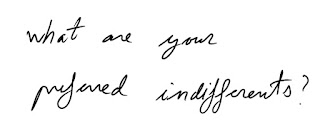 what are your
preferred indifferents?